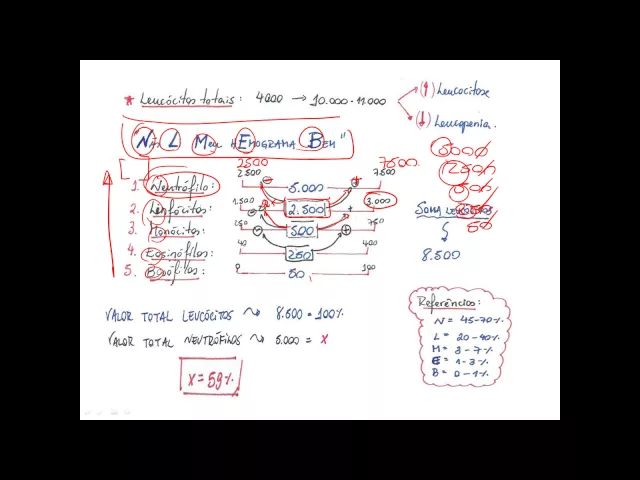 * Leucócitos totais: 4000 → 10.000 - 11.000
(↑) Leucocitose
(↓) Leucopenia
"Não Leu Meu Hemograma Bem"
2500 7500
2.500 5.000 7.500
1. Neutrófilo:
1.500 2.500 3.000
2. Linfócitos:
150 500 750
3. Monócitos:
40 250 400
4. Eosinófilos:
0 50 100
5. Basófilos:
5000
2500
500
50
Soma Leucócitos
8.500
VALOR TOTAL LEUCÓCITOS ⤳ 8.500 = 100%
VALOR TOTAL NEUTRÓFILOS ⤳ 5.000 = X
X = 59%
Referências:
N = 45-70%
L = 20-40%
M = 3-7%
E = 1-3%
B = 0-1%